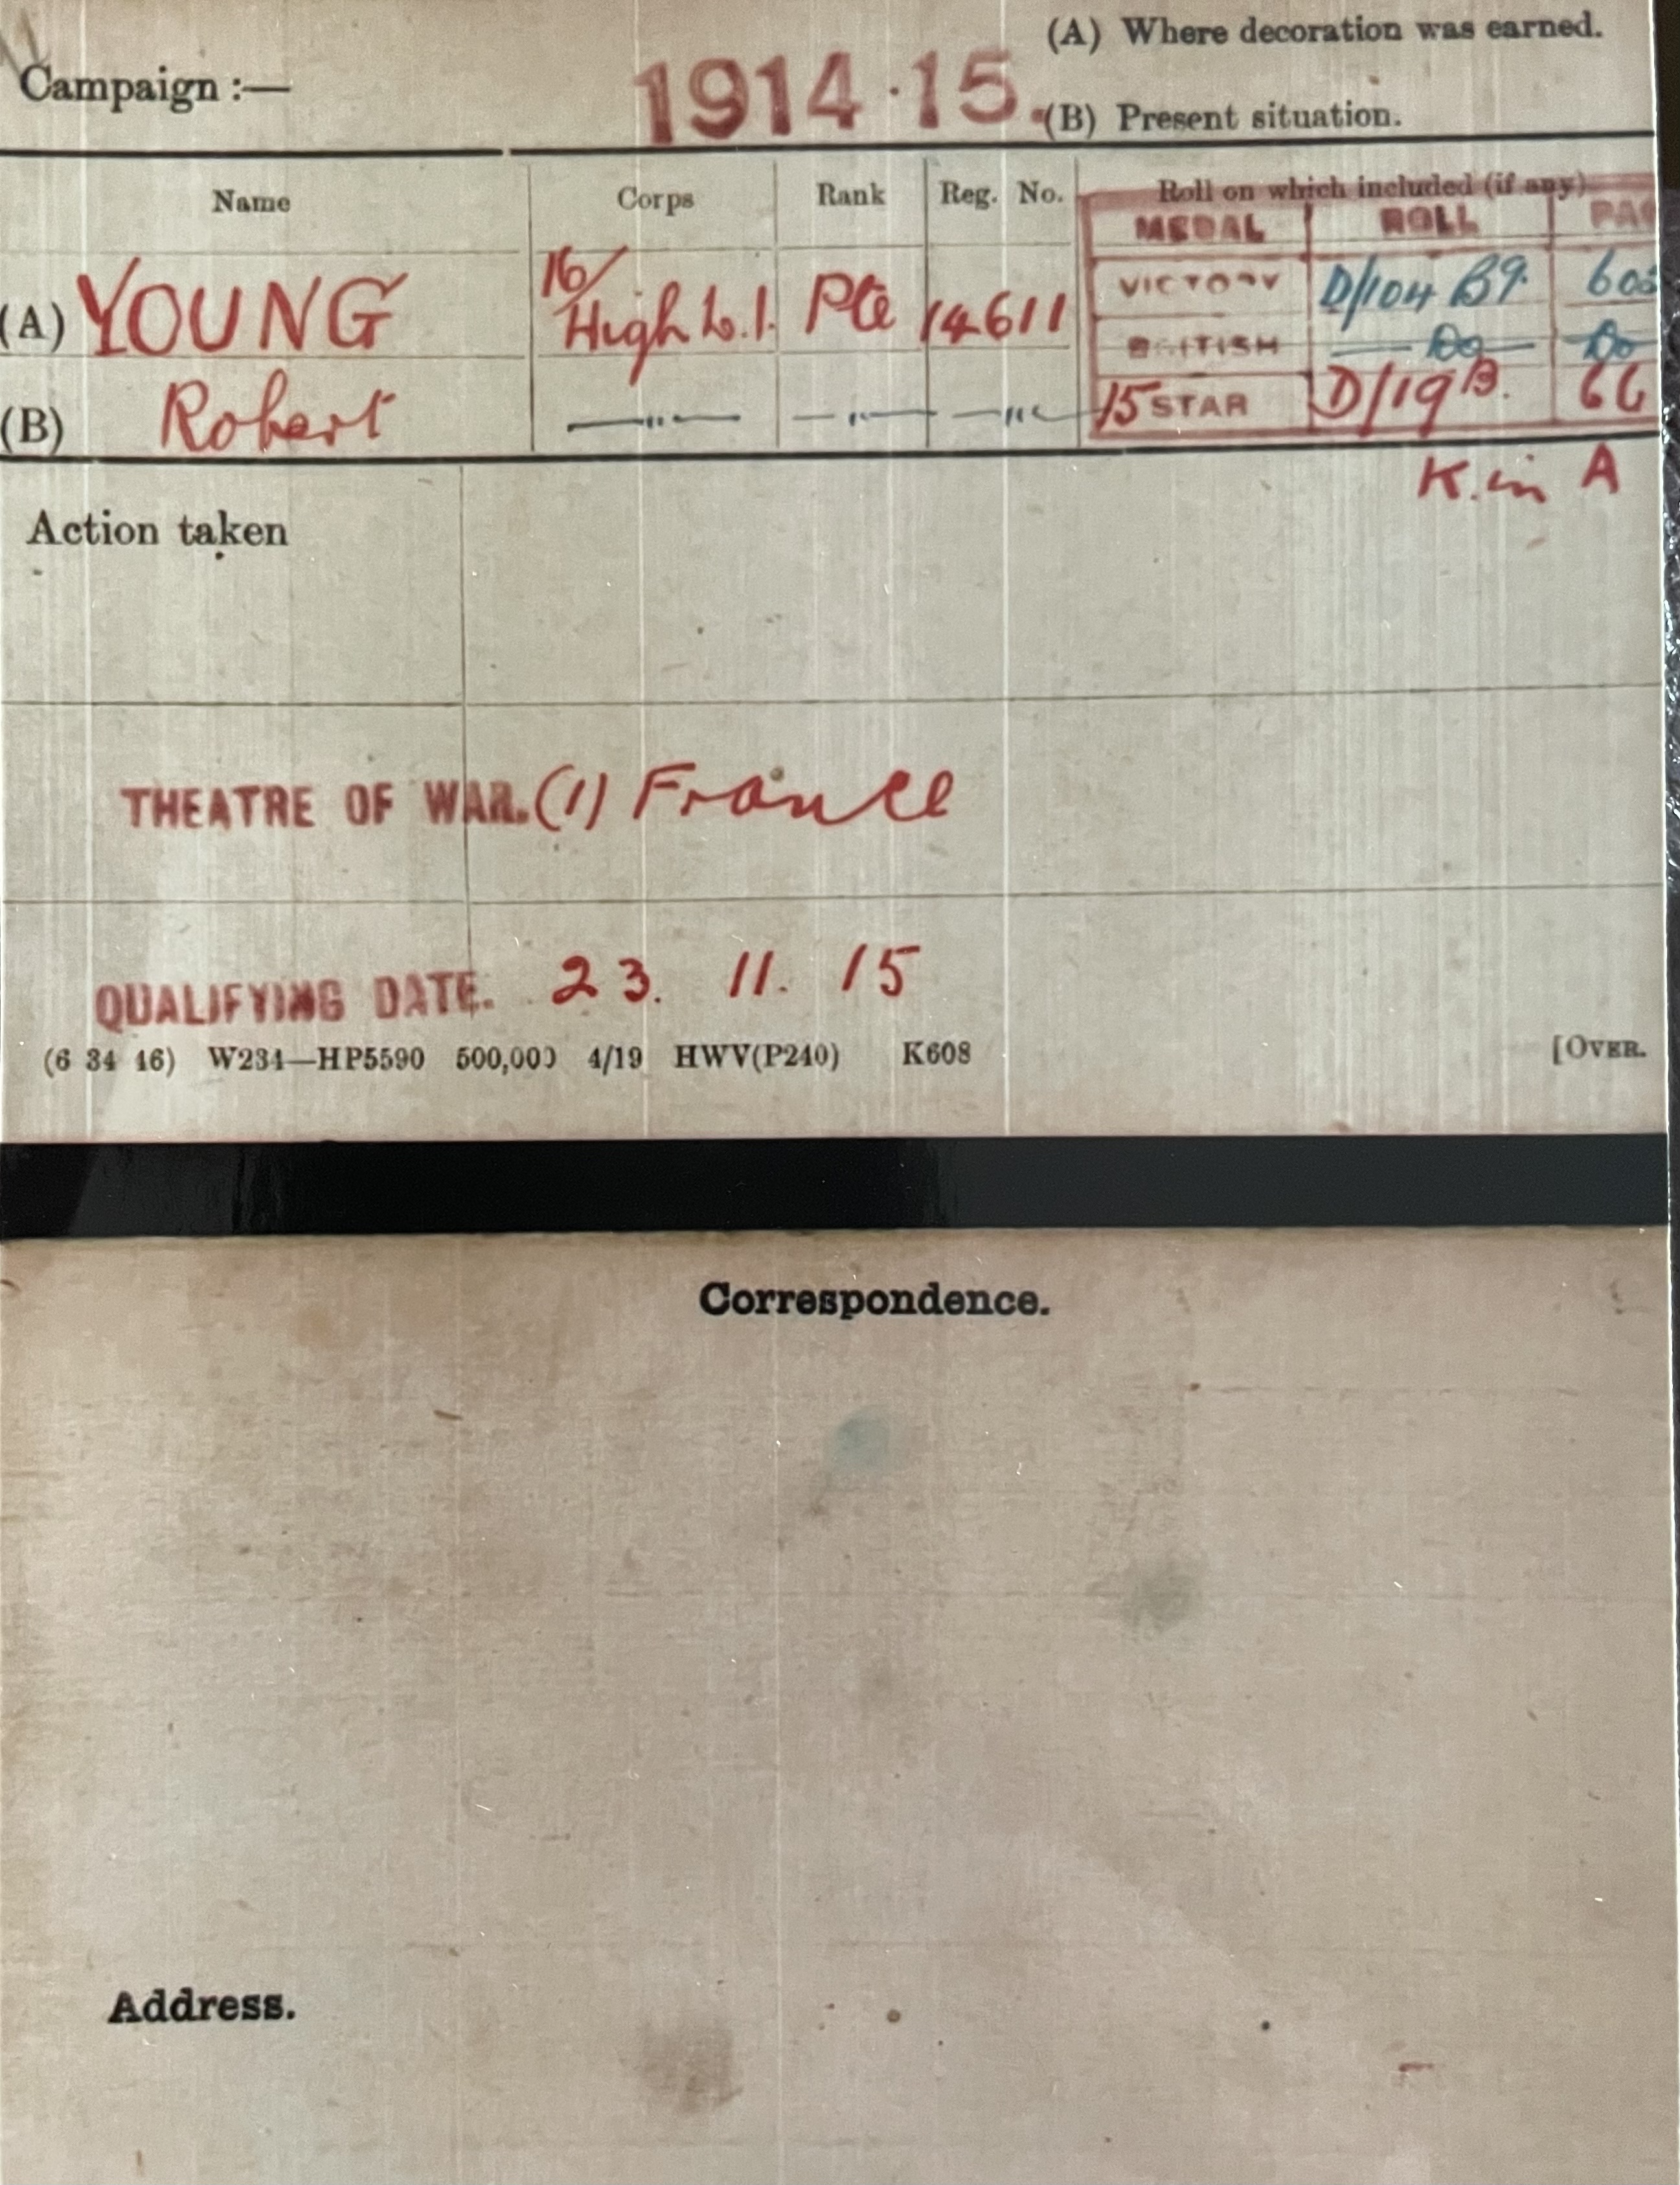 (A) Where decoration was earned.
Campaign :— 1914·15. (B) Present situation.
Name Corps Rank Reg. No. Roll on which included (if any)
MEDAL ROLL
(A) YOUNG 16/ High L.I. Pte 14611 VICTORY D/104 B9.
BRITISH — Do — Do
(B) Robert — " — — " — — " — 15 STAR D/19 B. 66
K. in A
Action taken
THEATRE OF WAR. (1) France
QUALIFYING DATE. 23. 11. 15
(6 34 46) W234—HP5590 500,000 4/19 HWV(P240) K608 [OVER.
Correspondence.
Address.